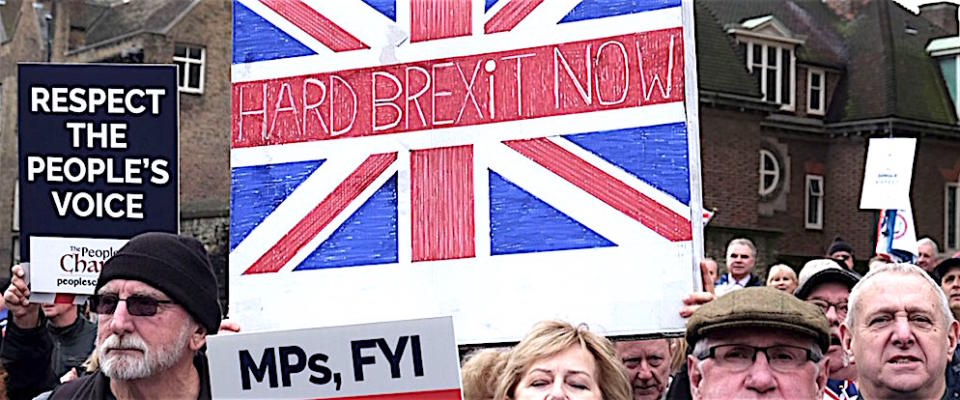 RESPECT
THE
PEOPLE'S
VOICE
The People
HARD BREXiT NOW
MPs, FYI